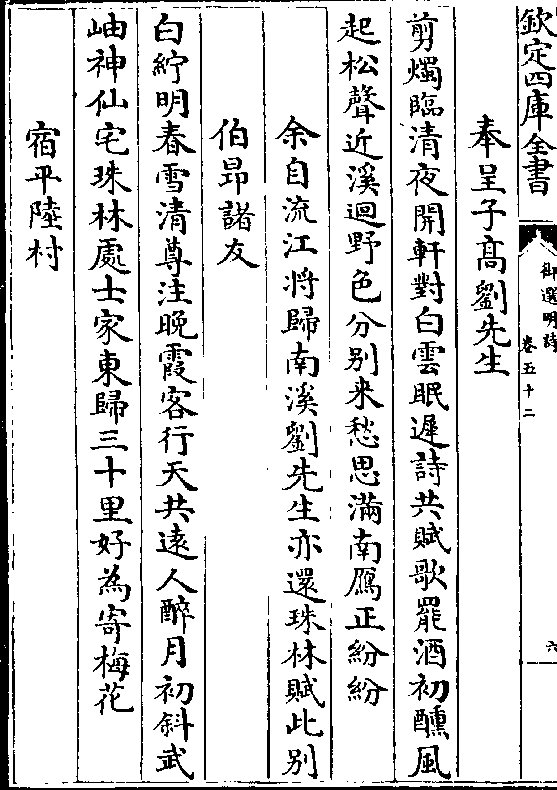 欽定四庫全書
御選明詩
卷五十二
六
奉呈子高劉先生
剪燭臨清夜開軒對白雲眠遲詩共賦歌罷酒初醺風
起松聲近溪迴野色分别来愁思滿南鴈正紛紛
余自流江將歸南溪劉先生亦還珠林賦此别
伯昻諸友
白紵明春雪清尊注晚霞客行天共逺人醉月初斜武
岫神仙宅珠林處士家東歸三十里好為寄梅花
宿平陸村